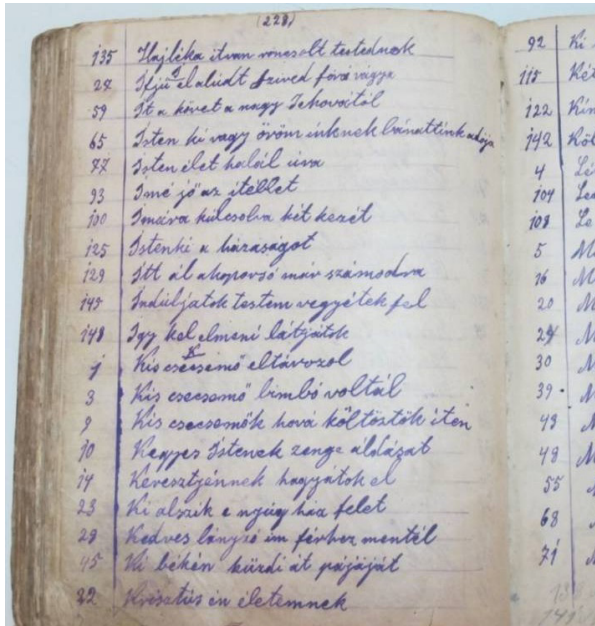 (228)
135 Hajléka itvan roncsolt testednek
24 Ifjú elaludt szived fővágya
59 It a követ a nagy Jehovától
65 Isten ki vagy öröm inknek bánattink adója
77 Isten élet halál ura
93 Imé jő az itéllet
100 Imára kulcsolva két kezét
125 Istenki a házaságot
129 Itt ál akoporsó már számodra
145 Induljatok testem vegyétek fel
148 Igy kel elmeni látjátok
1 Kis csecsemő eltávozol
3 Kis csecsemő bimbó voltál
9 Kis csecsemők hová költöztök iten
10 Kegyes Istenek zenge áldását
14 Keresztyénnek hagyátok el
23 Ki alszik e nyúgy ház felet
29 Kedves lányzó im férhez mentél
45 Ki békén küzdi át pájáját
22 Krisztús én életemnek
92 Ki
115 Két
122 Kín
142 Köt
4 Lé
104
108 Le
5 M
16 M
20 M
24 M
30 M
39 M
43 M
48 M
55
68
71